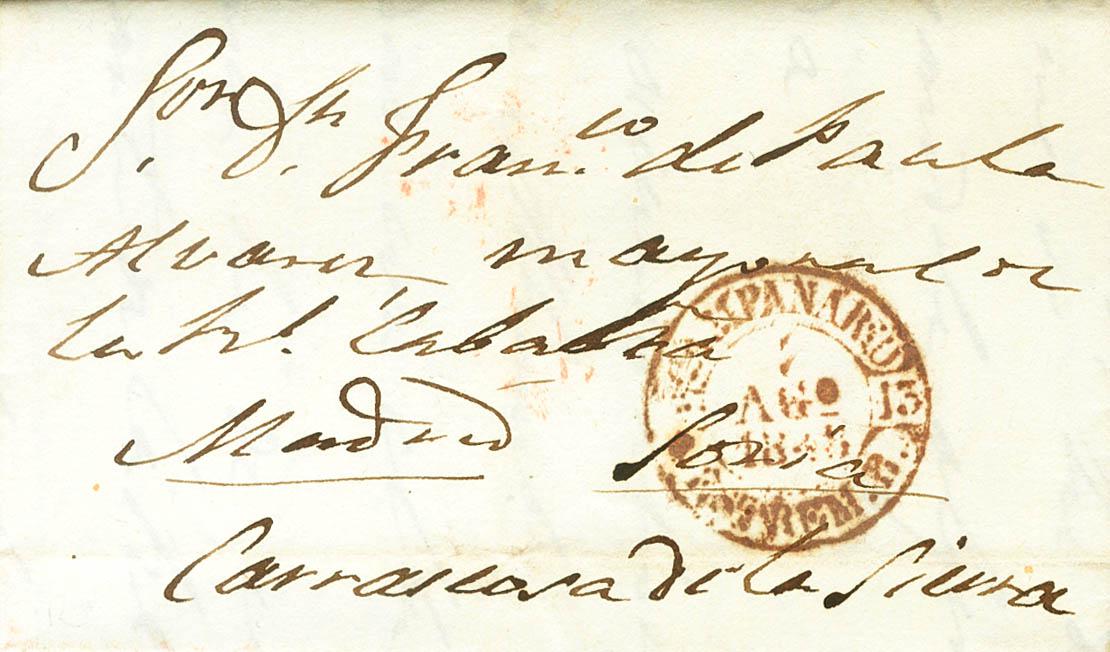 Sor Dn
S. D. Fran.co de Paula
Alvarez mayoral de
la Rl. Cabaña
Madrid Soria
Carrascosa de la Sierra
CAMPANARIO
15
7
AGO
1845
ESTREM.A